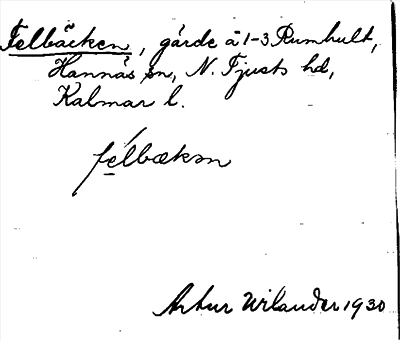 Felbäcken, gärde å 1-3 Rumhult,
Hannäs sn, N. Tjusts hd,
Kalmar l.
fe̠lbækən
Artur Wilander 1930